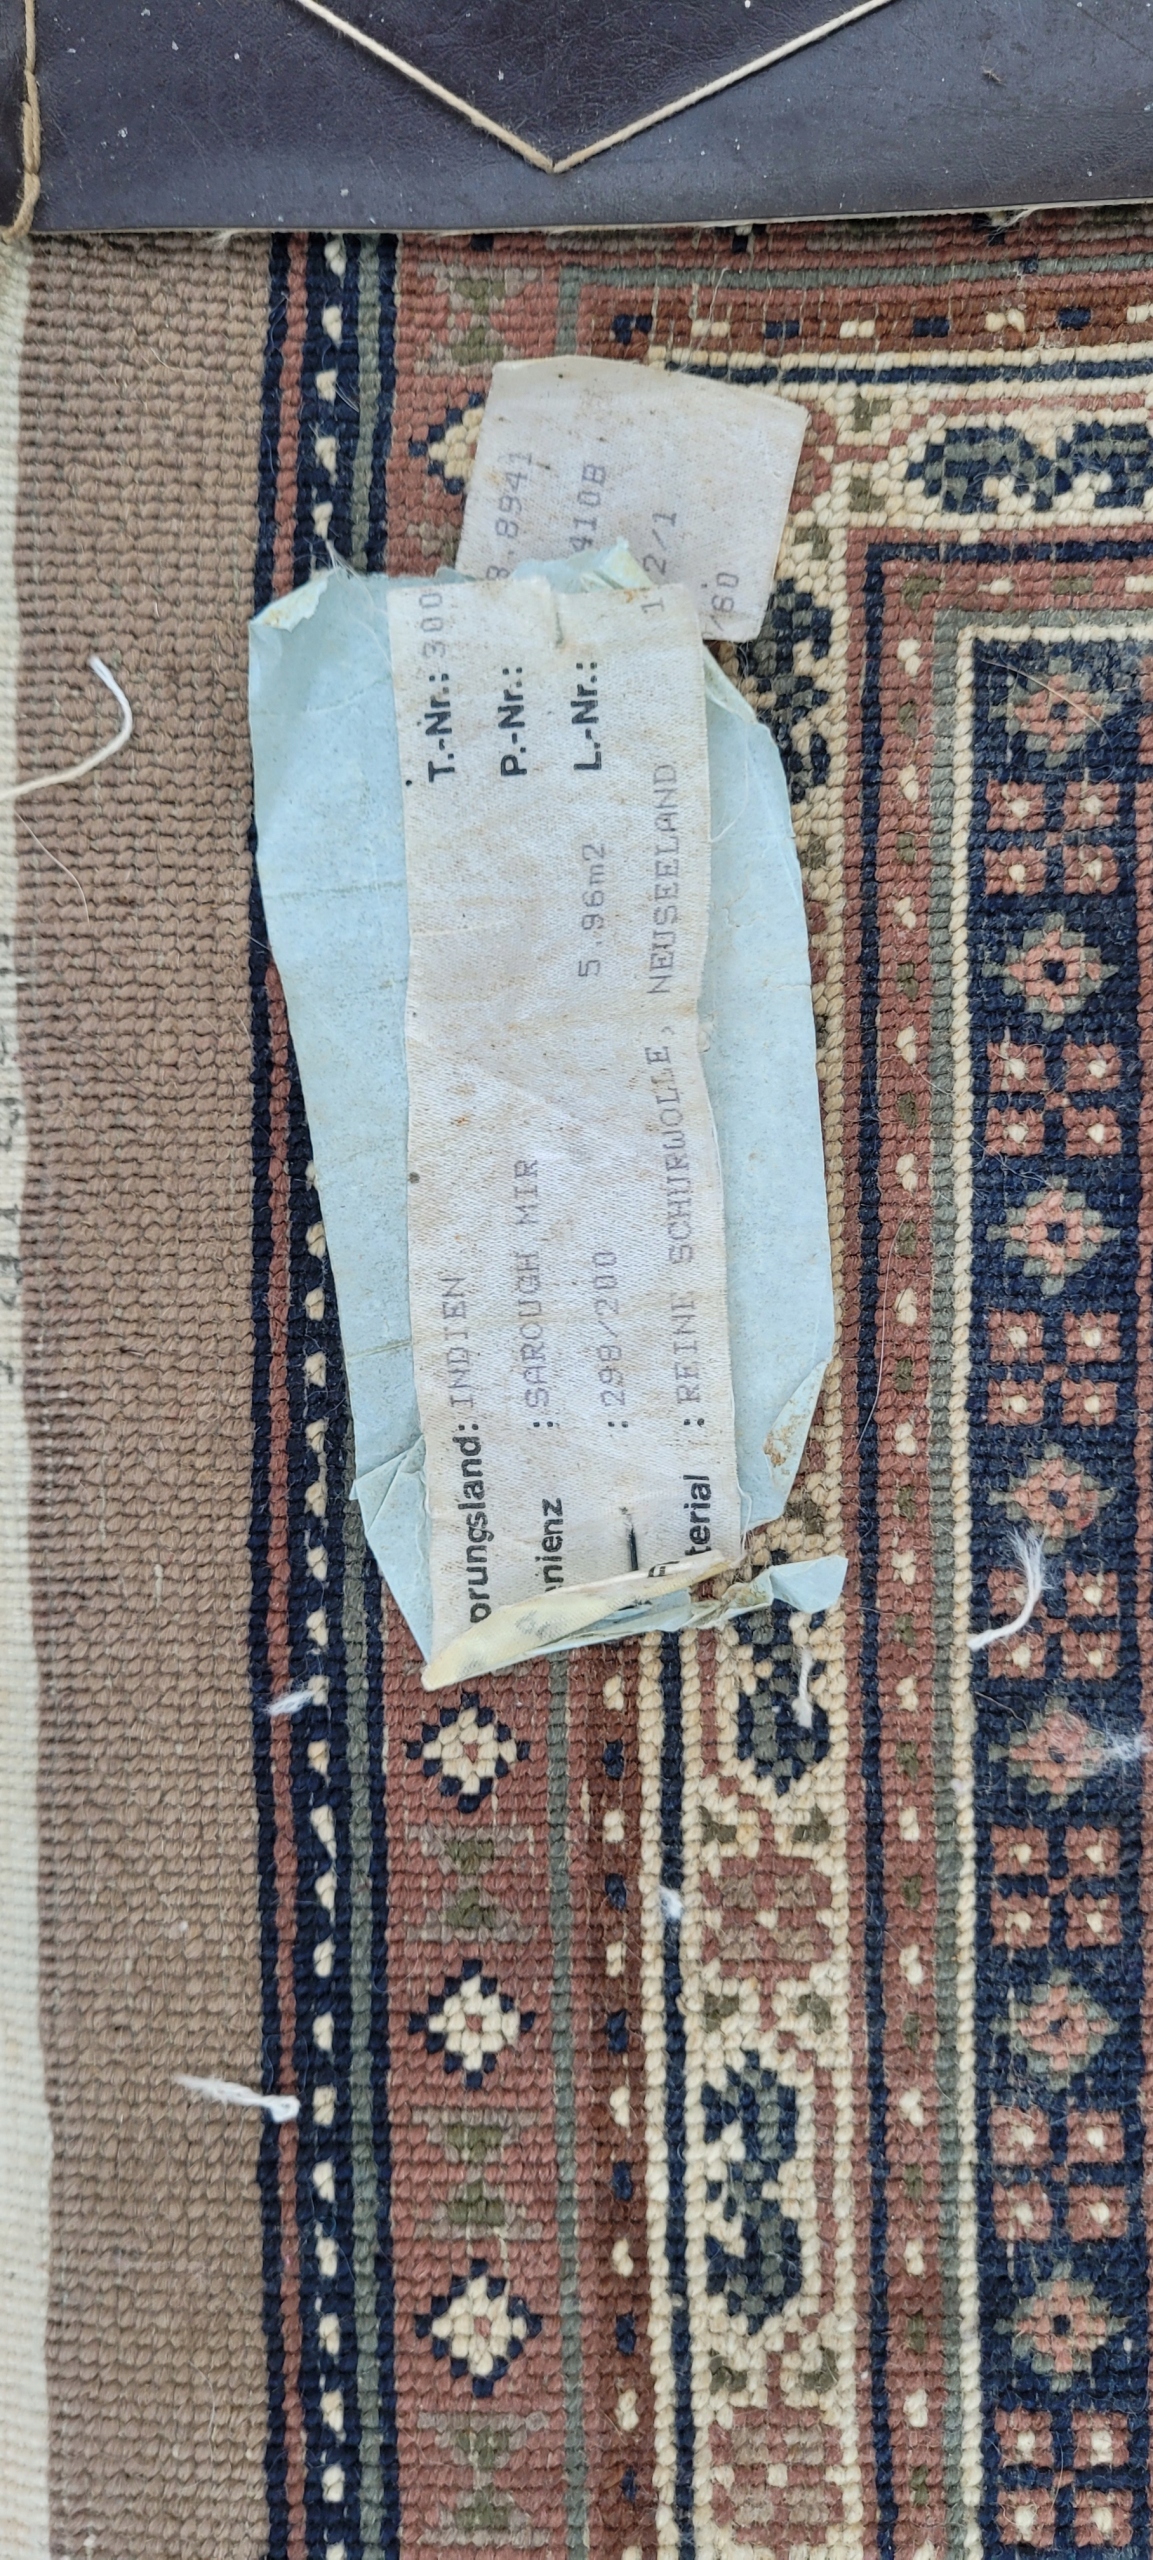 prungsland: INDIEN T.-Nr.: 300
enienz : SAROUGH MIR P.-Nr.:
: 298/200 5.96m2 L.-Nr.:
terial : REINE SCHURWOLLE, NEUSEELAND
8.8941
410B
2/1
/60